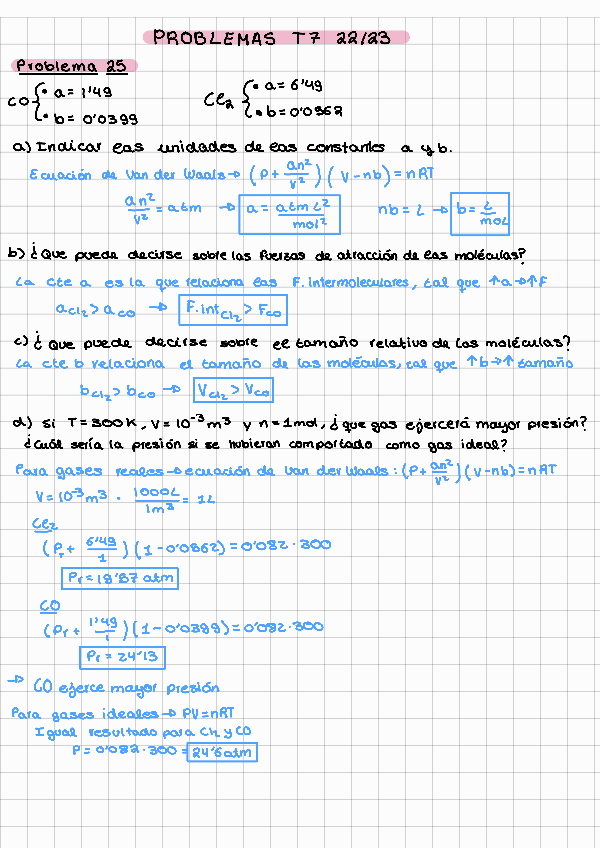 PROBLEMAS T7 22/23
Problema 25
CO { • a = 1'49
• b = 0'0399
Cl₂ { • a = 6'49
• b = 0'0562
a) Indicar las unidades de las constantes a y b.
Ecuación de Van der Waals → (P + an²/V²) (V - nb) = nRT
an²/V² = atm → a = atm L²/mol² nb = L → b = L/mol
b) ¿Que puede decirse sobre las fuerzas de atracción de las moléculas?
La cte a es la que relaciona las F. intermoleculares, tal que ↑a → ↑F
a Cl₂ > a CO → F. int Cl₂ > F CO
c) ¿Que puede decirse sobre el tamaño relativo de las moléculas?
La cte b relaciona el tamaño de las moléculas, tal que ↑b → ↑ tamaño
b Cl₂ > b CO → V Cl₂ > V CO
d) Si T = 300K, V = 10⁻³ m³ y n = 1mol, ¿que gas ejercerá mayor presión?
¿Cuál sería la presión si se hubieran comportado como gas ideal?
Para gases reales → ecuación de Van der Waals: (P + an²/V²) (V - nb) = nRT
V = 10⁻³ m³ · 1000L/1m³ = 1L
Cl₂
(Pr + 6'49/1) (1 - 0'0562) = 0'082 · 300
Pr = 19'57 atm
CO
(Pr + 1'49/1) (1 - 0'0399) = 0'082 · 300
Pr = 24'13
→ CO ejerce mayor presión
Para gases ideales → PV = nRT
Igual resultado para Cl₂ y CO
P = 0'082 · 300 = 24'6 atm